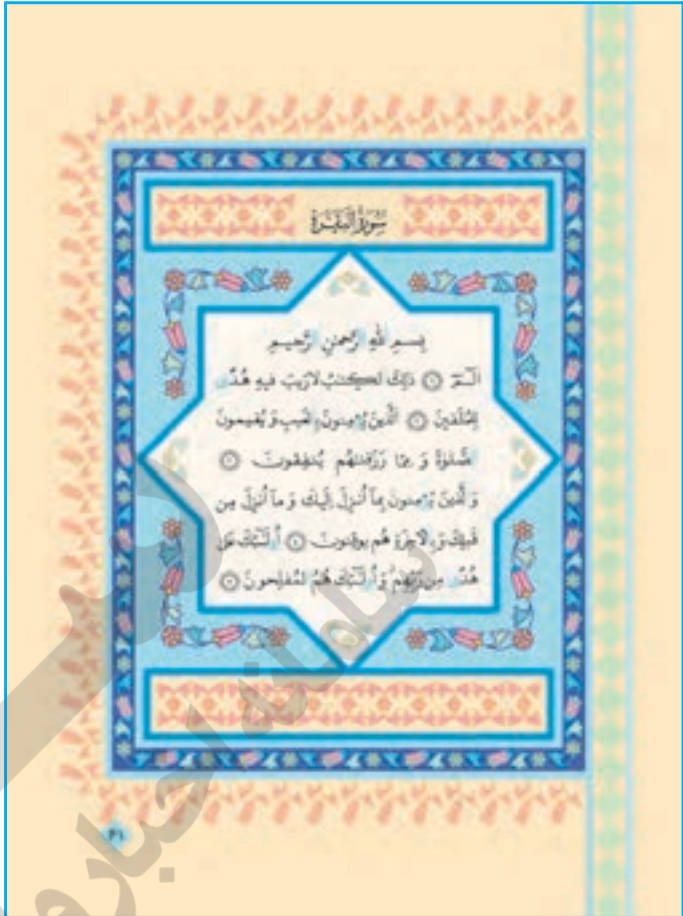 سورة البقرة
بِسمِ اللهِ الرَّحمنِ الرَّحيمِ
الٓمٓ ۱ ذٰلِكَ الكِتابُ لا رَيبَ فيهِ هُدًى
لِلمُتَّقينَ ۲ اَلَّذينَ يُؤمِنونَ بِالغَيبِ وَ يُقيمونَ
الصَّلوٰةَ وَ مِمّا رَزَقنٰهُم يُنفِقونَ ۳
وَ الَّذينَ يُؤمِنونَ بِمآ اُنزِلَ اِلَيكَ وَ مآ اُنزِلَ مِن
قَبلِكَ وَ بِالأخِرَةِ هُم يوقِنونَ ۴ اُولٰٓئِكَ عَلىٰ
هُدًى مِن رَبِّهِم وَ اُولٰٓئِكَ هُمُ المُفلِحونَ ۵
۴۱